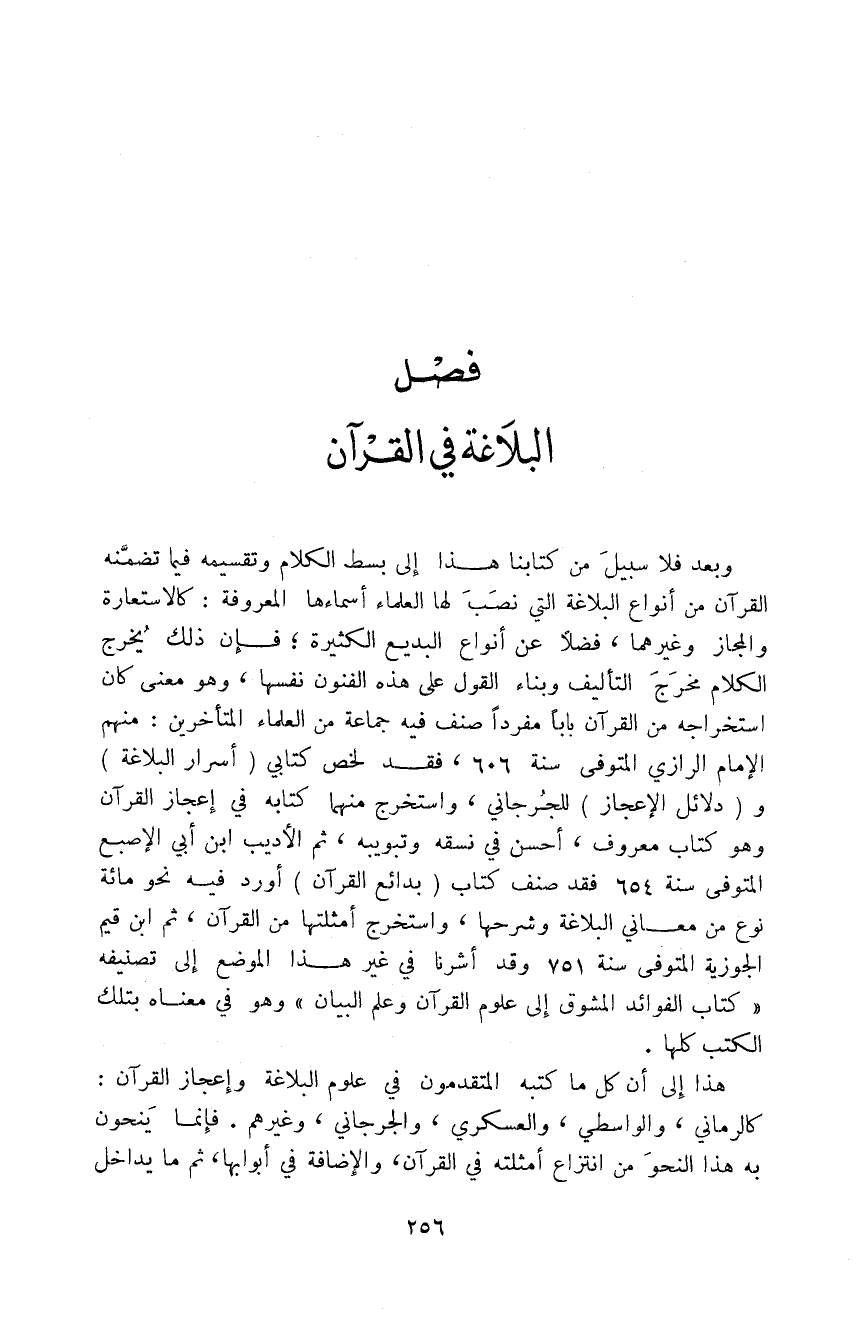 فصْل
البلَاغة في القرْآن
وبعد فلا سبيلَ من كتابنا هذا إلى بسط الكلام وتقسيمه فيما تضمَّنه
القرآن من أنواع البلاغة التي نصَبَ لها العلماء أسماءها المعروفة : كالاستعارة
والمجاز وغيرهما ، فضلاً عن أنواع البديع الكثيرة ؛ فإن ذلك يُخرج
الكلام مخرَجَ التأليف وبناء القول على هذه الفنون نفسها ، وهو معنى كان
استخراجه من القرآن باباً مفرداً صنف فيه جماعة من العلماء المتأخرين : منهم
الإمام الرازي المتوفى سنة ٦٠٦ ، فقد لخص كتابي ( أسرار البلاغة )
و ( دلائل الإعجاز ) للجُرجاني ، واستخرج منهما كتابه في إعجاز القرآن
وهو كتاب معروف ، أحسن في نسقه وتبويبه ، ثم الأديب ابن أبي الإصبع
المتوفى سنة ٦٥٤ فقد صنف كتاب ( بدائع القرآن ) أورد فيه نحو مائة
نوع من معاني البلاغة وشرحها ، واستخرج أمثلتها من القرآن ، ثم ابن قيم
الجوزية المتوفى سنة ٧٥١ وقد أشرنا في غير هذا الموضع إلى تصنيفه
« كتاب الفوائد المشوق إلى علوم القرآن وعلم البيان » وهو في معناه بتلك
الكتب كلها .
هذا إلى أن كل ما كتبه المتقدمون في علوم البلاغة وإعجاز القرآن :
كالرماني ، والواسطي ، والعسكري ، والجرجاني ، وغيرهم . فإنما يَنحون
به هذا النحوَ من انتزاع أمثلته في القرآن، والإضافة في أبوابها، ثم ما يداخل
٢٥٦